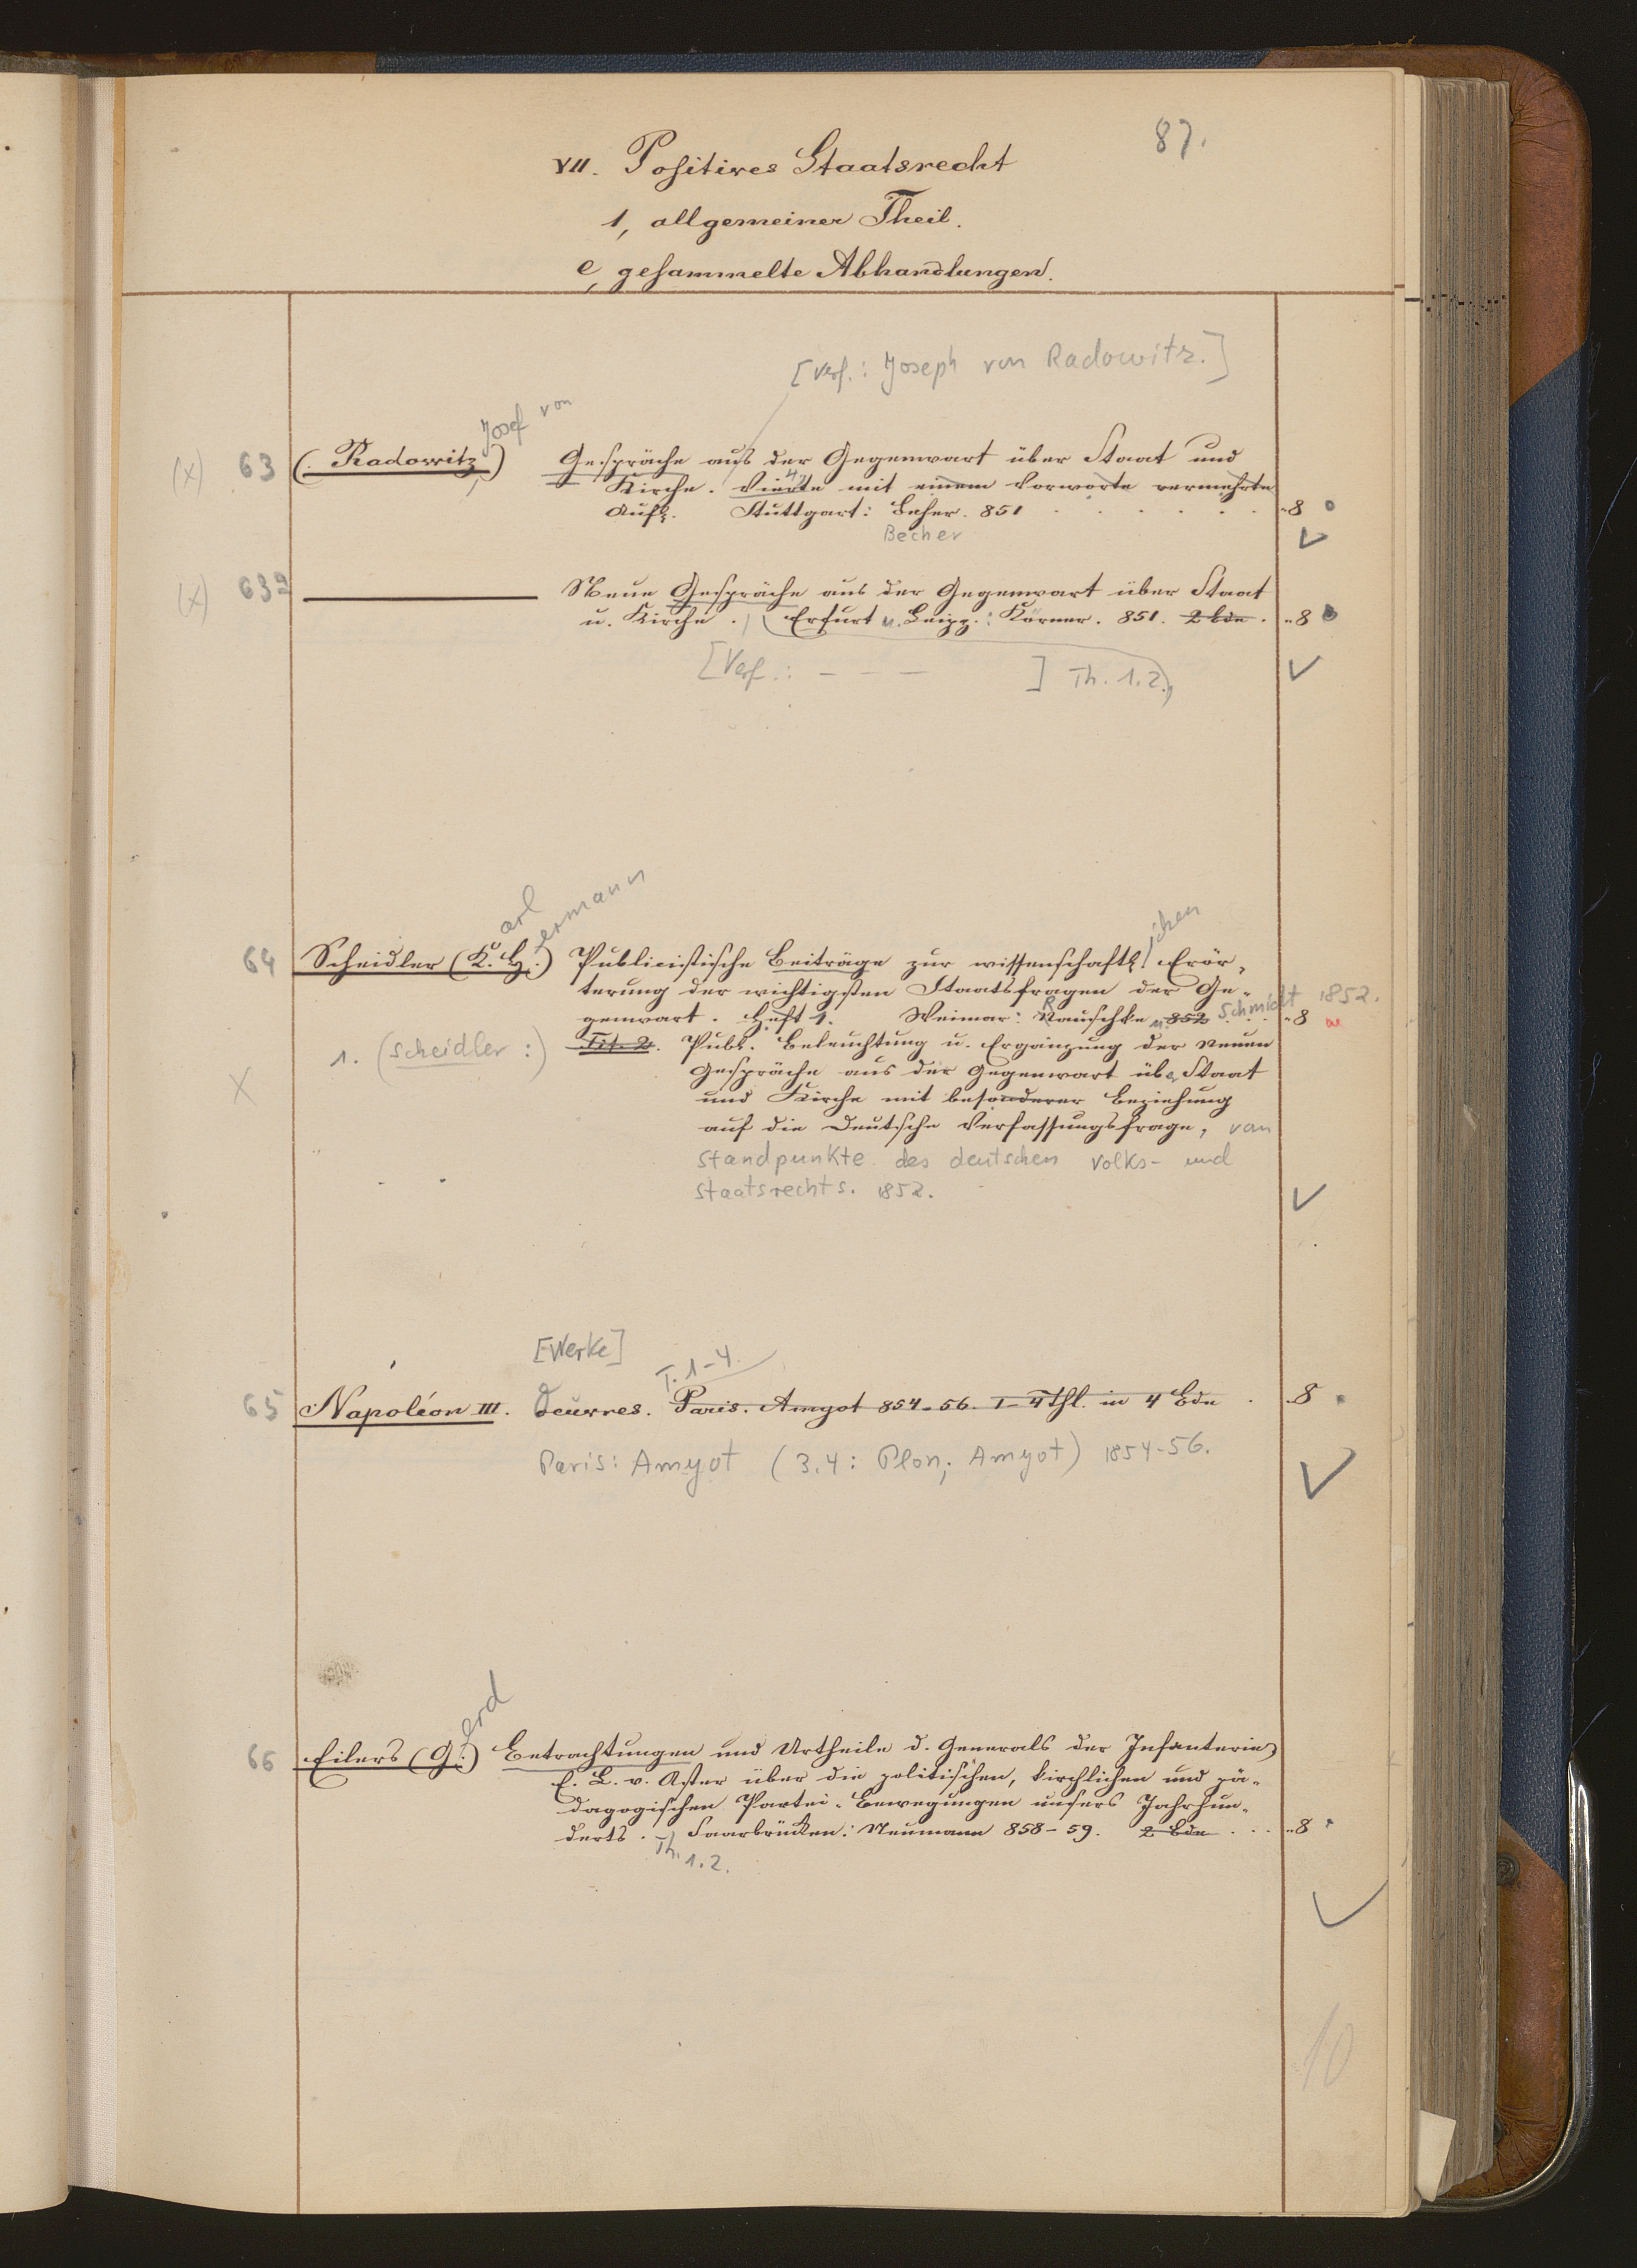 87.
VII. Positives Staatsrecht
1, allgemeiner Theil.
e, gesammelte Abhandlungen.
[Verf.: Joseph von Radowitz.]
Josef von
(x) 63 (Radowitz,) Gespräche aus der Gegenwart über Staat und
Kirche. Vierte 4, mit einem Vorworte vermehrte
Aufl. Stuttgart: Becher. 851 . . . . . . 8
Becher
(x) 63a ——— Neue Gespräche aus der Gegenwart über Staat
u. Kirche. Erfurt u. Leipz.: Körner. 851. 2 Bde. 8
[Verf.: – – – ] Th. 1.2.,
arl ermann ichen
64 Scheidler (K. H.) Publicistische Beiträge zur wissenschaftl. Erör-
terung der wichtigsten Staatsfragen der Ge-
genwart. Heft 1. Weimar: Rauschke u. 852 Schmidt 1852. 8
1. (Scheidler:) Tit. 2. Publ. Beleuchtung u. Ergänzung der neuen
Gespräche aus der Gegenwart über Staat
X und Kirche mit besonderer Beziehung
auf die Deutsche Verfassungsfrage, vom
Standpunkte des deutschen Volks- und
Staatsrechts. 1852.
[Werke]
T. 1-4.
65 Napoléon III. Oeuvres. Paris. Amyot 854-56. I-4 Thl. in 4 Bde . 8
Paris: Amyot (3.4: Plon; Amyot) 1854-56.
erd
66 Eilers (G.) Betrachtungen und Urtheile d. Generals der Infanterie
E. L. v. Aster über die politischen, kirchlichen und pä-
dagogischen Partei-Bewegungen unsers Jahrhun-
derts. Saarbrücken: Neumann 858-59. 2 Bde . . . 8
Th. 1.2.
10